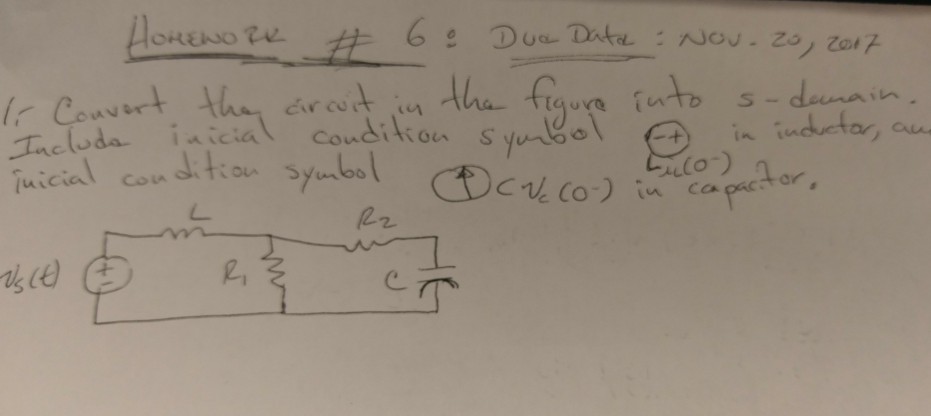 HOMEWORK # 6 : Due Date : NOV. 20, 2017
1.- Convert the circuit in the figure into s-domain.
Include inicial condition symbol (-+) in inductor, an
L iL(0-)
inicial condition symbol (↑) C Vc (0-) in capacitor.
L
R2
Vs(t)
+
-
R1
C